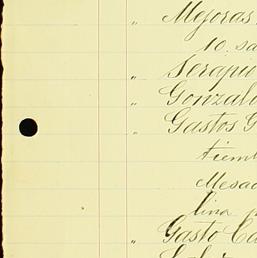 " Mejoras
10. sa
" Serapio
" Gonzal
" Gastos G
tiem
Mesa
lina
" Gasto Ca